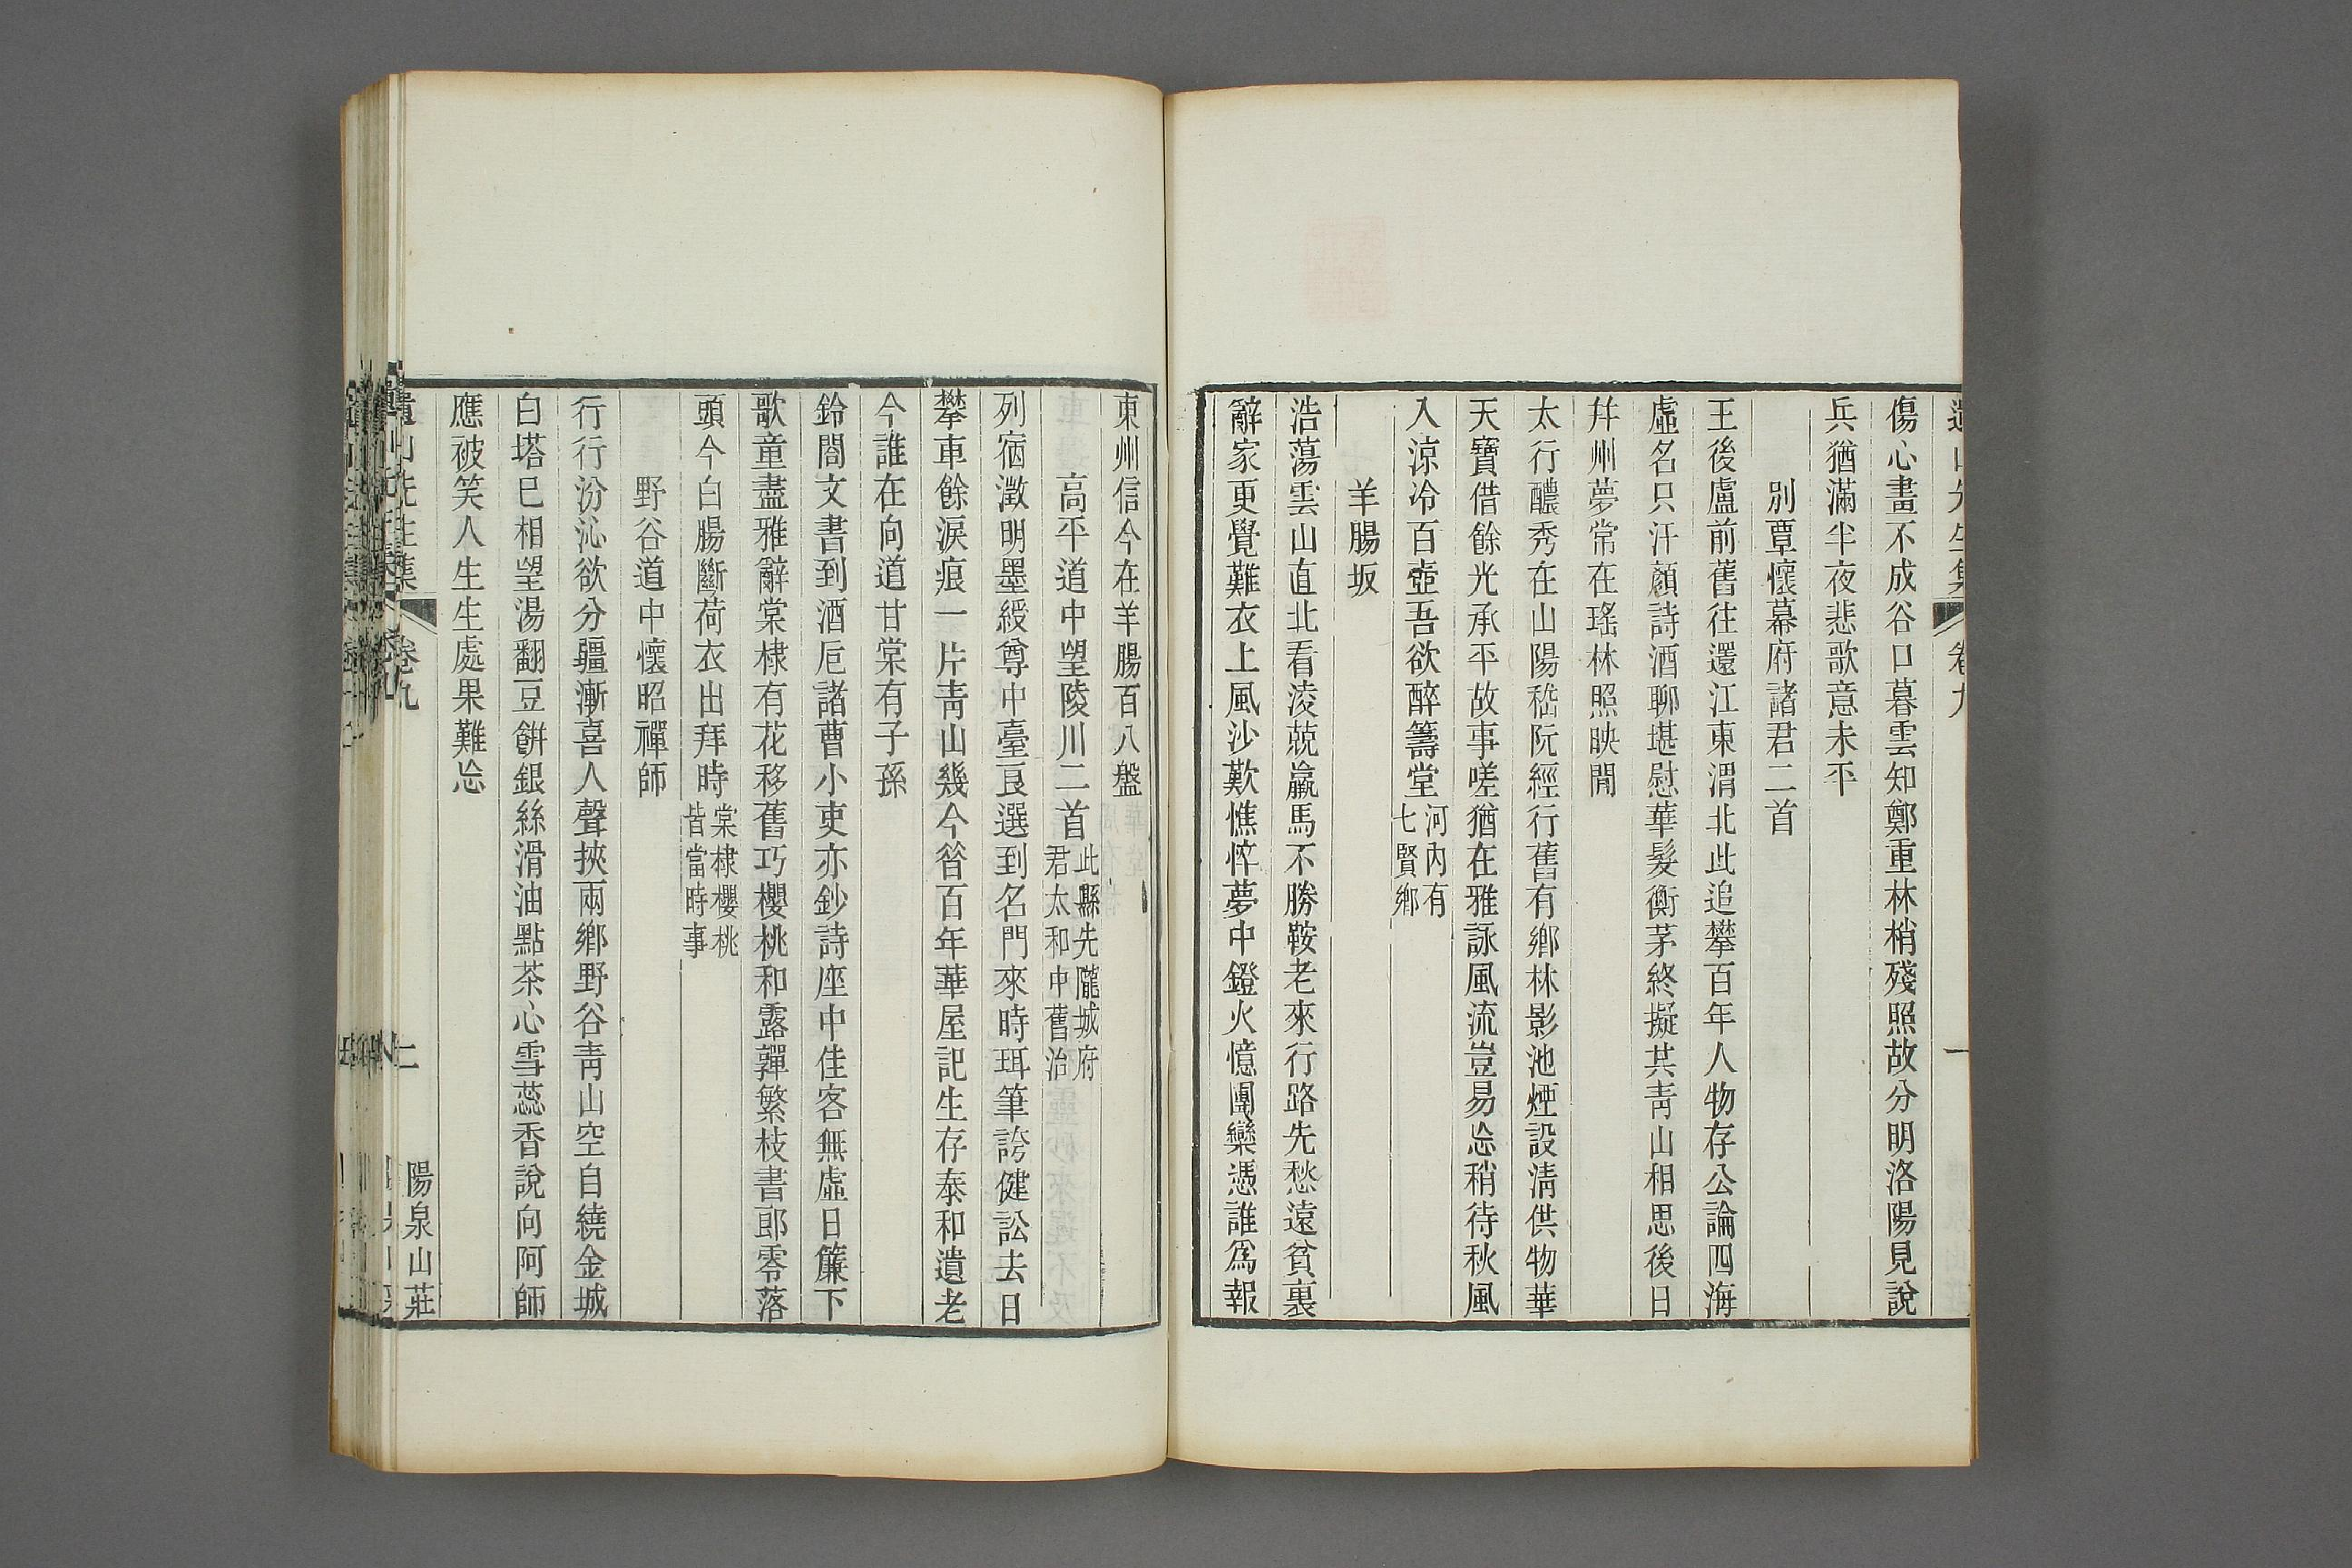 遺山先生集 卷九 一
傷心畫不成谷口暮雲知鄭重林梢殘照故分明洛陽見說
兵猶滿半夜悲歌意未平
別覃懷幕府諸君二首
王後盧前舊往還江東渭北此追攀百年人物存公論四海
虛名只汗顏詩酒聊堪慰華髮衡茅終擬共青山相思後日
幷州夢常在瑤林照映閒
太行醲秀在山陽嵇阮經行舊有鄉林影池煙設淸供物華
天寶借餘光承平故事嗟猶在雅詠風流豈易忘稍待秋風
入涼冷百壺吾欲醉籌堂河內有七賢鄉
羊腸坂
浩蕩雲山直北看淩兢羸馬不勝鞍老來行路先愁遠貧裏
辭家更覺難衣上風沙歎憔悴夢中鐙火憶團欒憑誰爲報
東州信今在羊腸百八盤
高平道中望陵川二首此縣先隴城府君太和中舊治
列宿澂明墨綬尊中臺良選到名門來時珥筆誇健訟去日
攀車餘淚痕一片靑山幾今昝百年華屋記生存泰和遺老
今誰在向道甘棠有子孫
鈴閤文書到酒卮諸曹小吏亦鈔詩座中佳客無虛日簾下
歌童盡雅辭棠棣有花移舊巧櫻桃和露嚲繁枝書郎零落
頭今白腸斷荷衣出拜時棠棣櫻桃皆當時事
野谷道中懷昭禪師
行行汾沁欲分疆漸喜人聲挾兩鄉野谷靑山空自繞金城
白塔巳相望湯翻豆餠銀絲滑油點茶心雪蕊香說向阿師
應被笑人生生處果難忘
遺山先生集 卷九 二 陽泉山莊